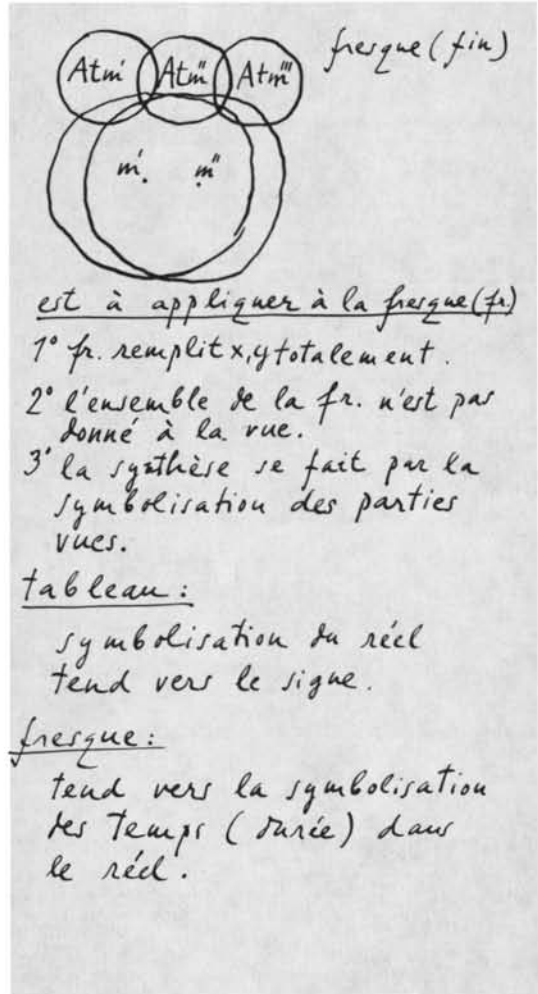 fresque (fin)
Atm' Atm'' Atm'''
m' m''
est à appliquer à la fresque (fr.)
1° fr. remplit x,y totalement.
2° l'ensemble de la fr. n'est pas
donné à la vue.
3° la synthèse se fait par la
symbolisation des parties
vues.
tableau :
symbolisation du réel
tend vers le signe.
fresque :
tend vers la symbolisation
des temps (durée) dans
le réel.